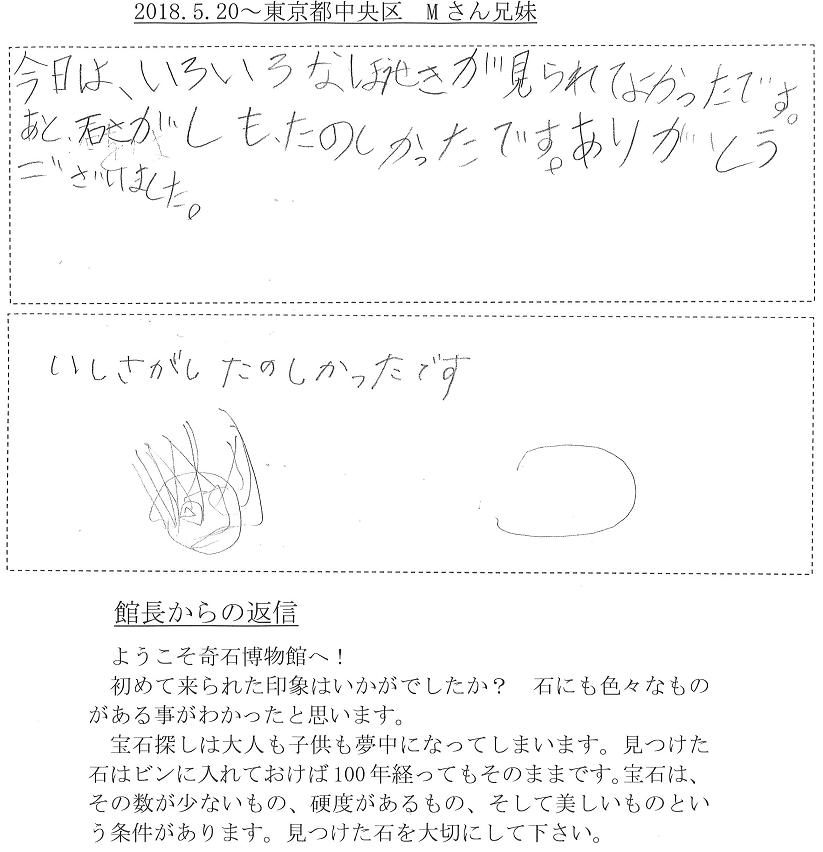 2018.5.20～東京都中央区　Mさん兄妹
今日は、いろいろなほうせきが見られてよかったです。
あと、石さがしも、たのしかったです。ありがとう
ございました。
いしさがし たのしかったです
館長からの返信
ようこそ奇石博物館へ！
初めて来られた印象はいかがでしたか？　石にも色々なもの
がある事がわかったと思います。
宝石探しは大人も子供も夢中になってしまいます。見つけた
石はビンに入れておけば100年経ってもそのままです。宝石は、
その数が少ないもの、硬度があるもの、そして美しいものとい
う条件があります。見つけた石を大切にして下さい。